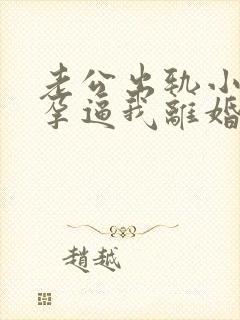 老公出轨小
孕逼我離婚
趙越